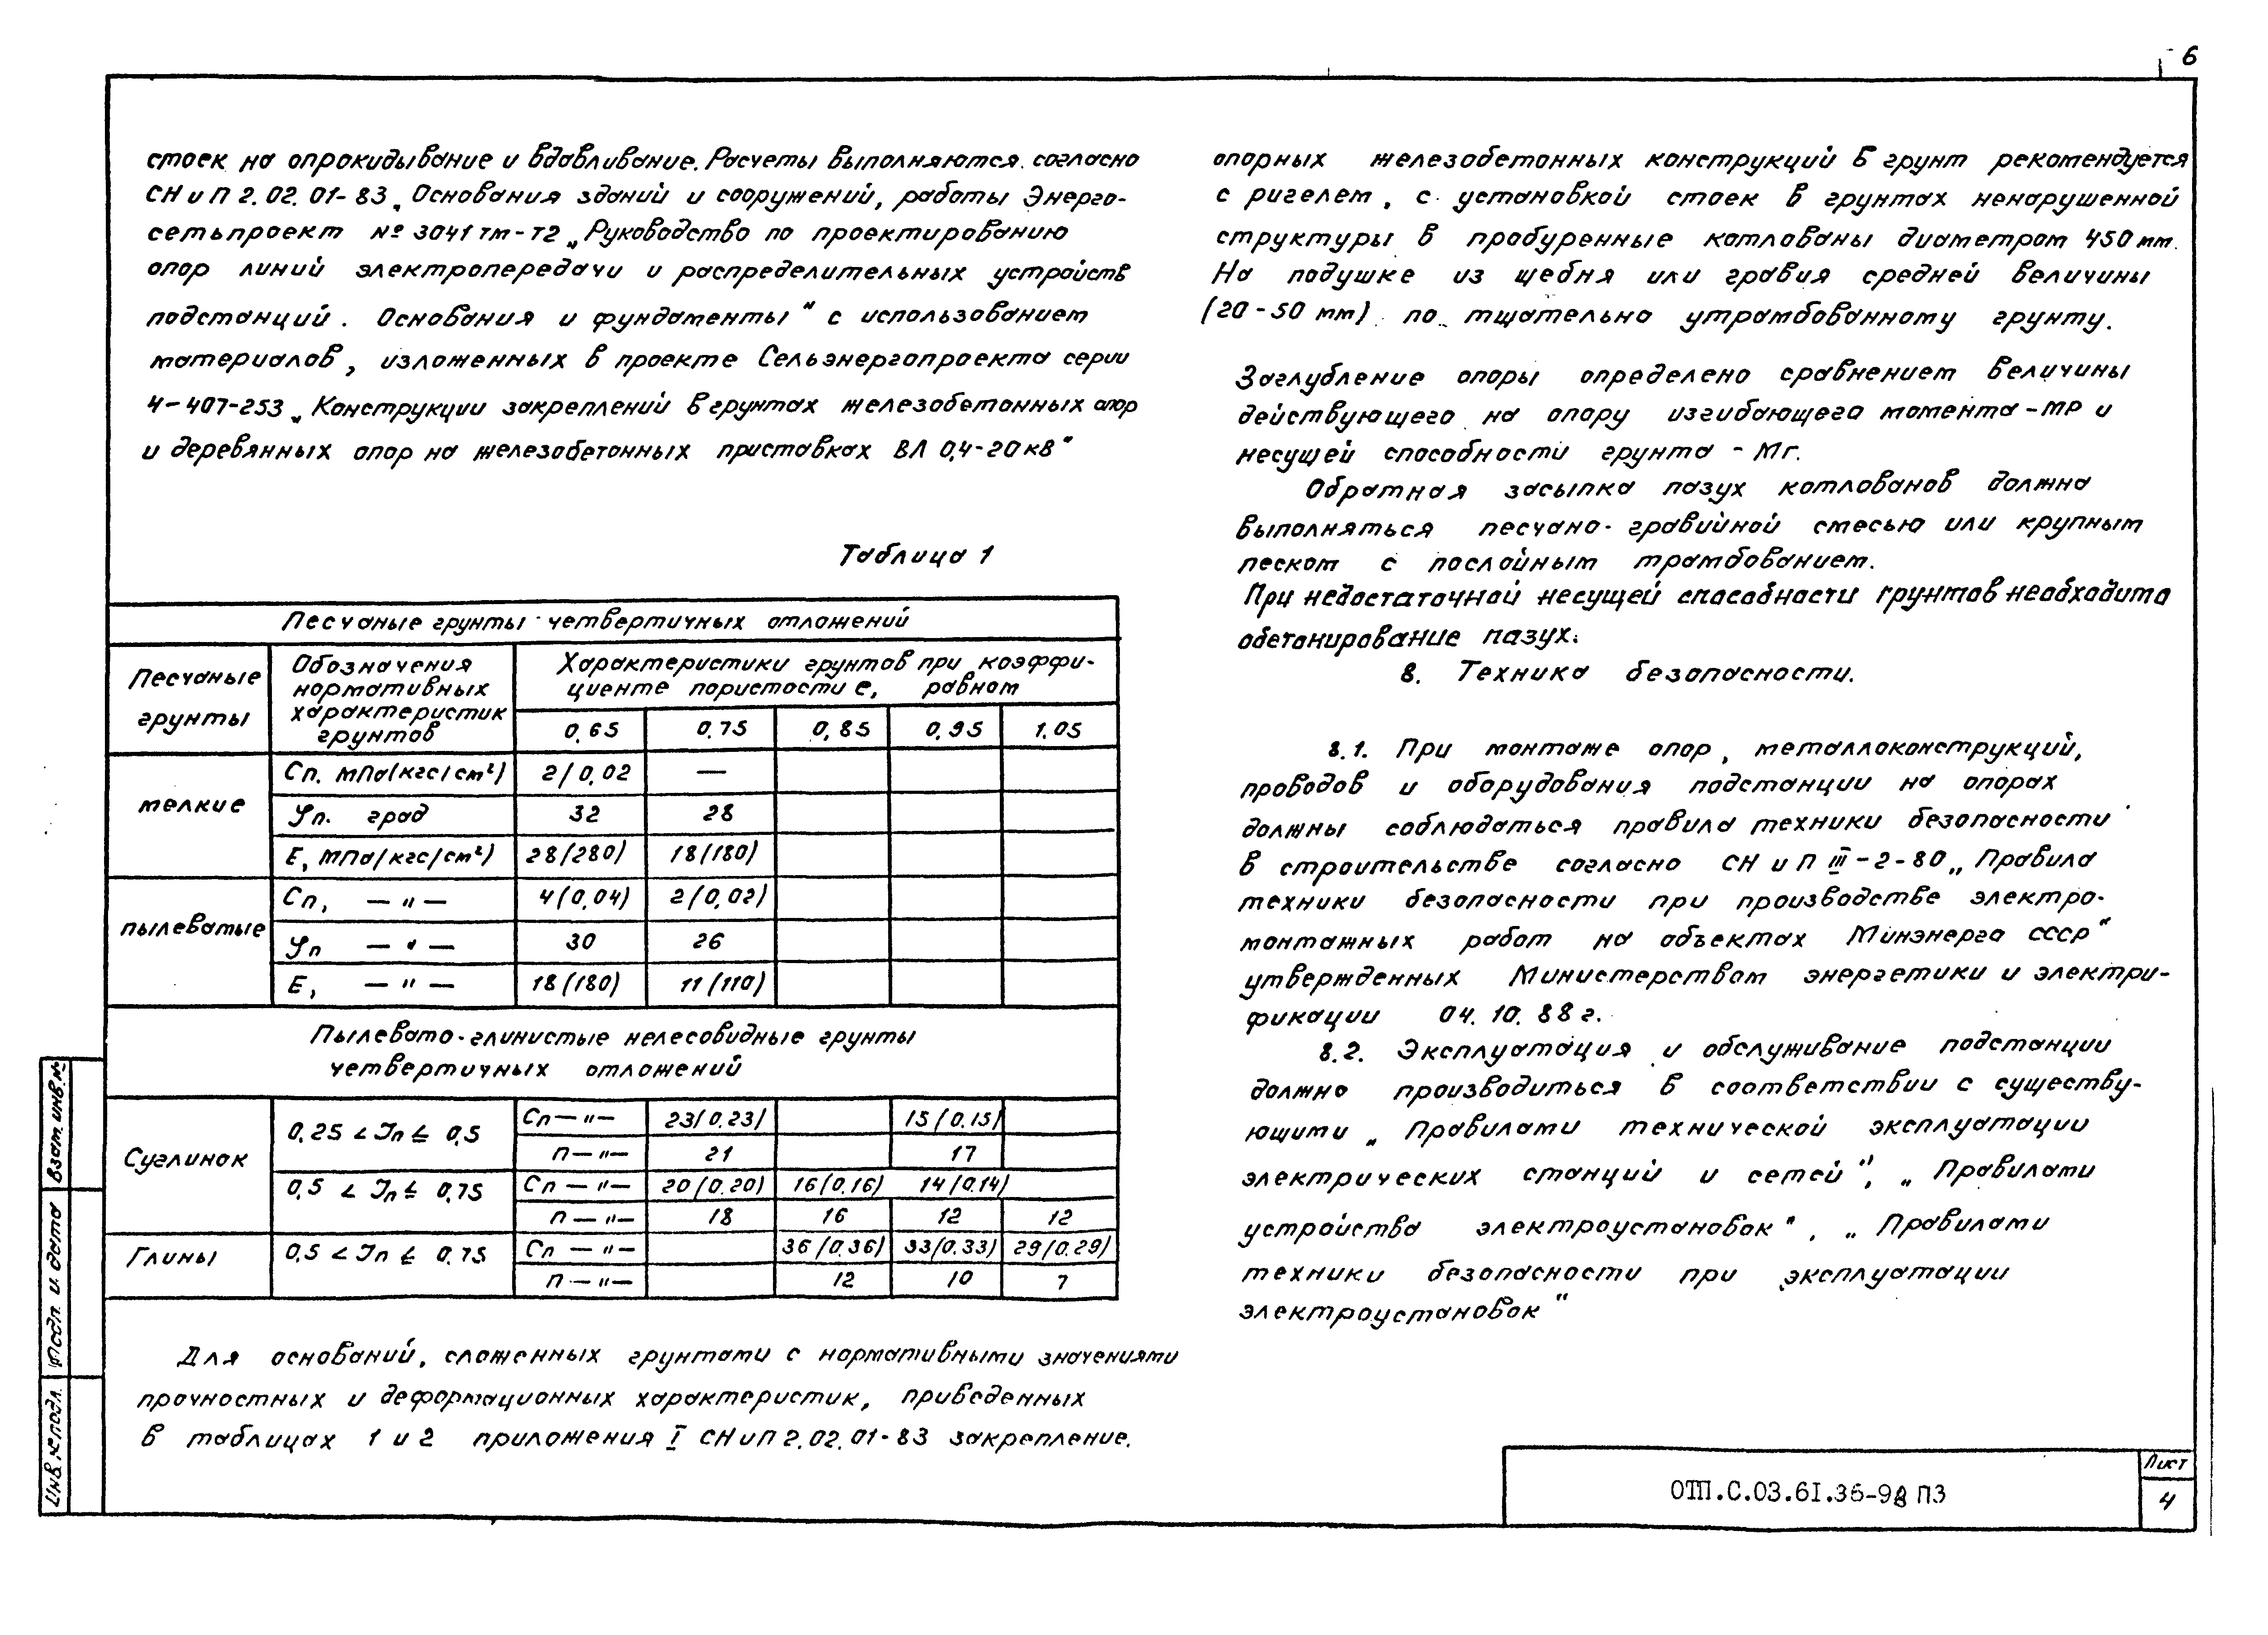 6
стоек на опрокидывание и вдавливание. Расчеты выполняются согласно
СН и П 2.02.01-83 „Основания зданий и сооружений, работы Энерго-
сетьпроект № 3041тм-т2 „Руководство по проектированию
опор линий электропередачи и распределительных устройств
подстанций. Основания и фундаменты" с использованием
материалов, изложенных в проекте Сельэнергопроекта серии
4-407-253 „Конструкции закреплений в грунтах железобетонных опор
и деревянных опор на железобетонных приставках ВЛ 0,4-20кВ"
Таблица 1
Песчаные грунты четвертичных отложений
Песчаные грунты
Обозначения нормативных характеристик грунтов
Характеристики грунтов при коэффи-
циенте пористости е, равном
0,65 0,75 0,85 0,95 1,05
мелкие
Сп. МПа(кгс/см²) 2/0,02 —
φп. град 32 28
Е, МПа(кгс/см²) 28(280) 18(180)
пылеватые
Сп, — " — 4(0,04) 2(0,02)
φп — " — 30 26
Е, — " — 18(180) 11(110)
Пылевато-глинистые нелесовидные грунты
четвертичных отложений
Суглинок
0,25 < Jп ≤ 0,5 Сп — " — 23(0.23) 15(0.15)
п — " — 21 17
0,5 < Jп ≤ 0,75 Сп — " — 20(0.20) 16(0.16) 14(0.14)
п — " — 18 16 12 12
Глины 0,5 < Jп ≤ 0.75 Сп — " — 36(0.36) 33(0.33) 29(0.29)
п — " — 12 10 7
Для оснований, сложенных грунтами с нормативными значениями
прочностных и деформационных характеристик, приведенных
в таблицах 1 и 2 приложения I СНиП 2.02.01-83 закрепление.
опорных железобетонных конструкций Б грунт рекомендуется
с ригелем, с установкой стоек в грунтах ненарушенной
структуры в пробуренные котлованы диаметром 450 мм.
На подушке из щебня или гравия средней величины
(20-50 мм) по тщательно утрамбованному грунту.
Заглубление опоры определено сравнением величины
действующего на опору изгибающего момента - МР и
несущей способности грунта - Мг.
Обратная засыпка пазух котлованов должна
выполняться песчано-гравийной смесью или крупным
песком с послойным трамбованием.
При недостаточной несущей способности грунтов необходимо
обетонирование пазух.
8. Техника безопасности.
8.1. При монтаже опор, металлоконструкций,
проводов и оборудования подстанции на опорах
должны соблюдаться правила техники безопасности
в строительстве согласно СН и П III-2-80 „Правила
техники безопасности при производстве электро-
монтажных работ на объектах Минэнерго СССР"
утвержденных Министерством энергетики и электри-
фикации 04.10.88г.
8.2. Эксплуатация и обслуживание подстанции
должно производиться в соответствии с существу-
ющими „Правилами технической эксплуатации
электрических станций и сетей", „Правилами
устройства электроустановок", „Правилами
техники безопасности при эксплуатации
электроустановок"
Взам. инв. №
Подп. и дата
Инв. № подл.
ОТП.С.03.61.36-93 ПЗ
Лист
4